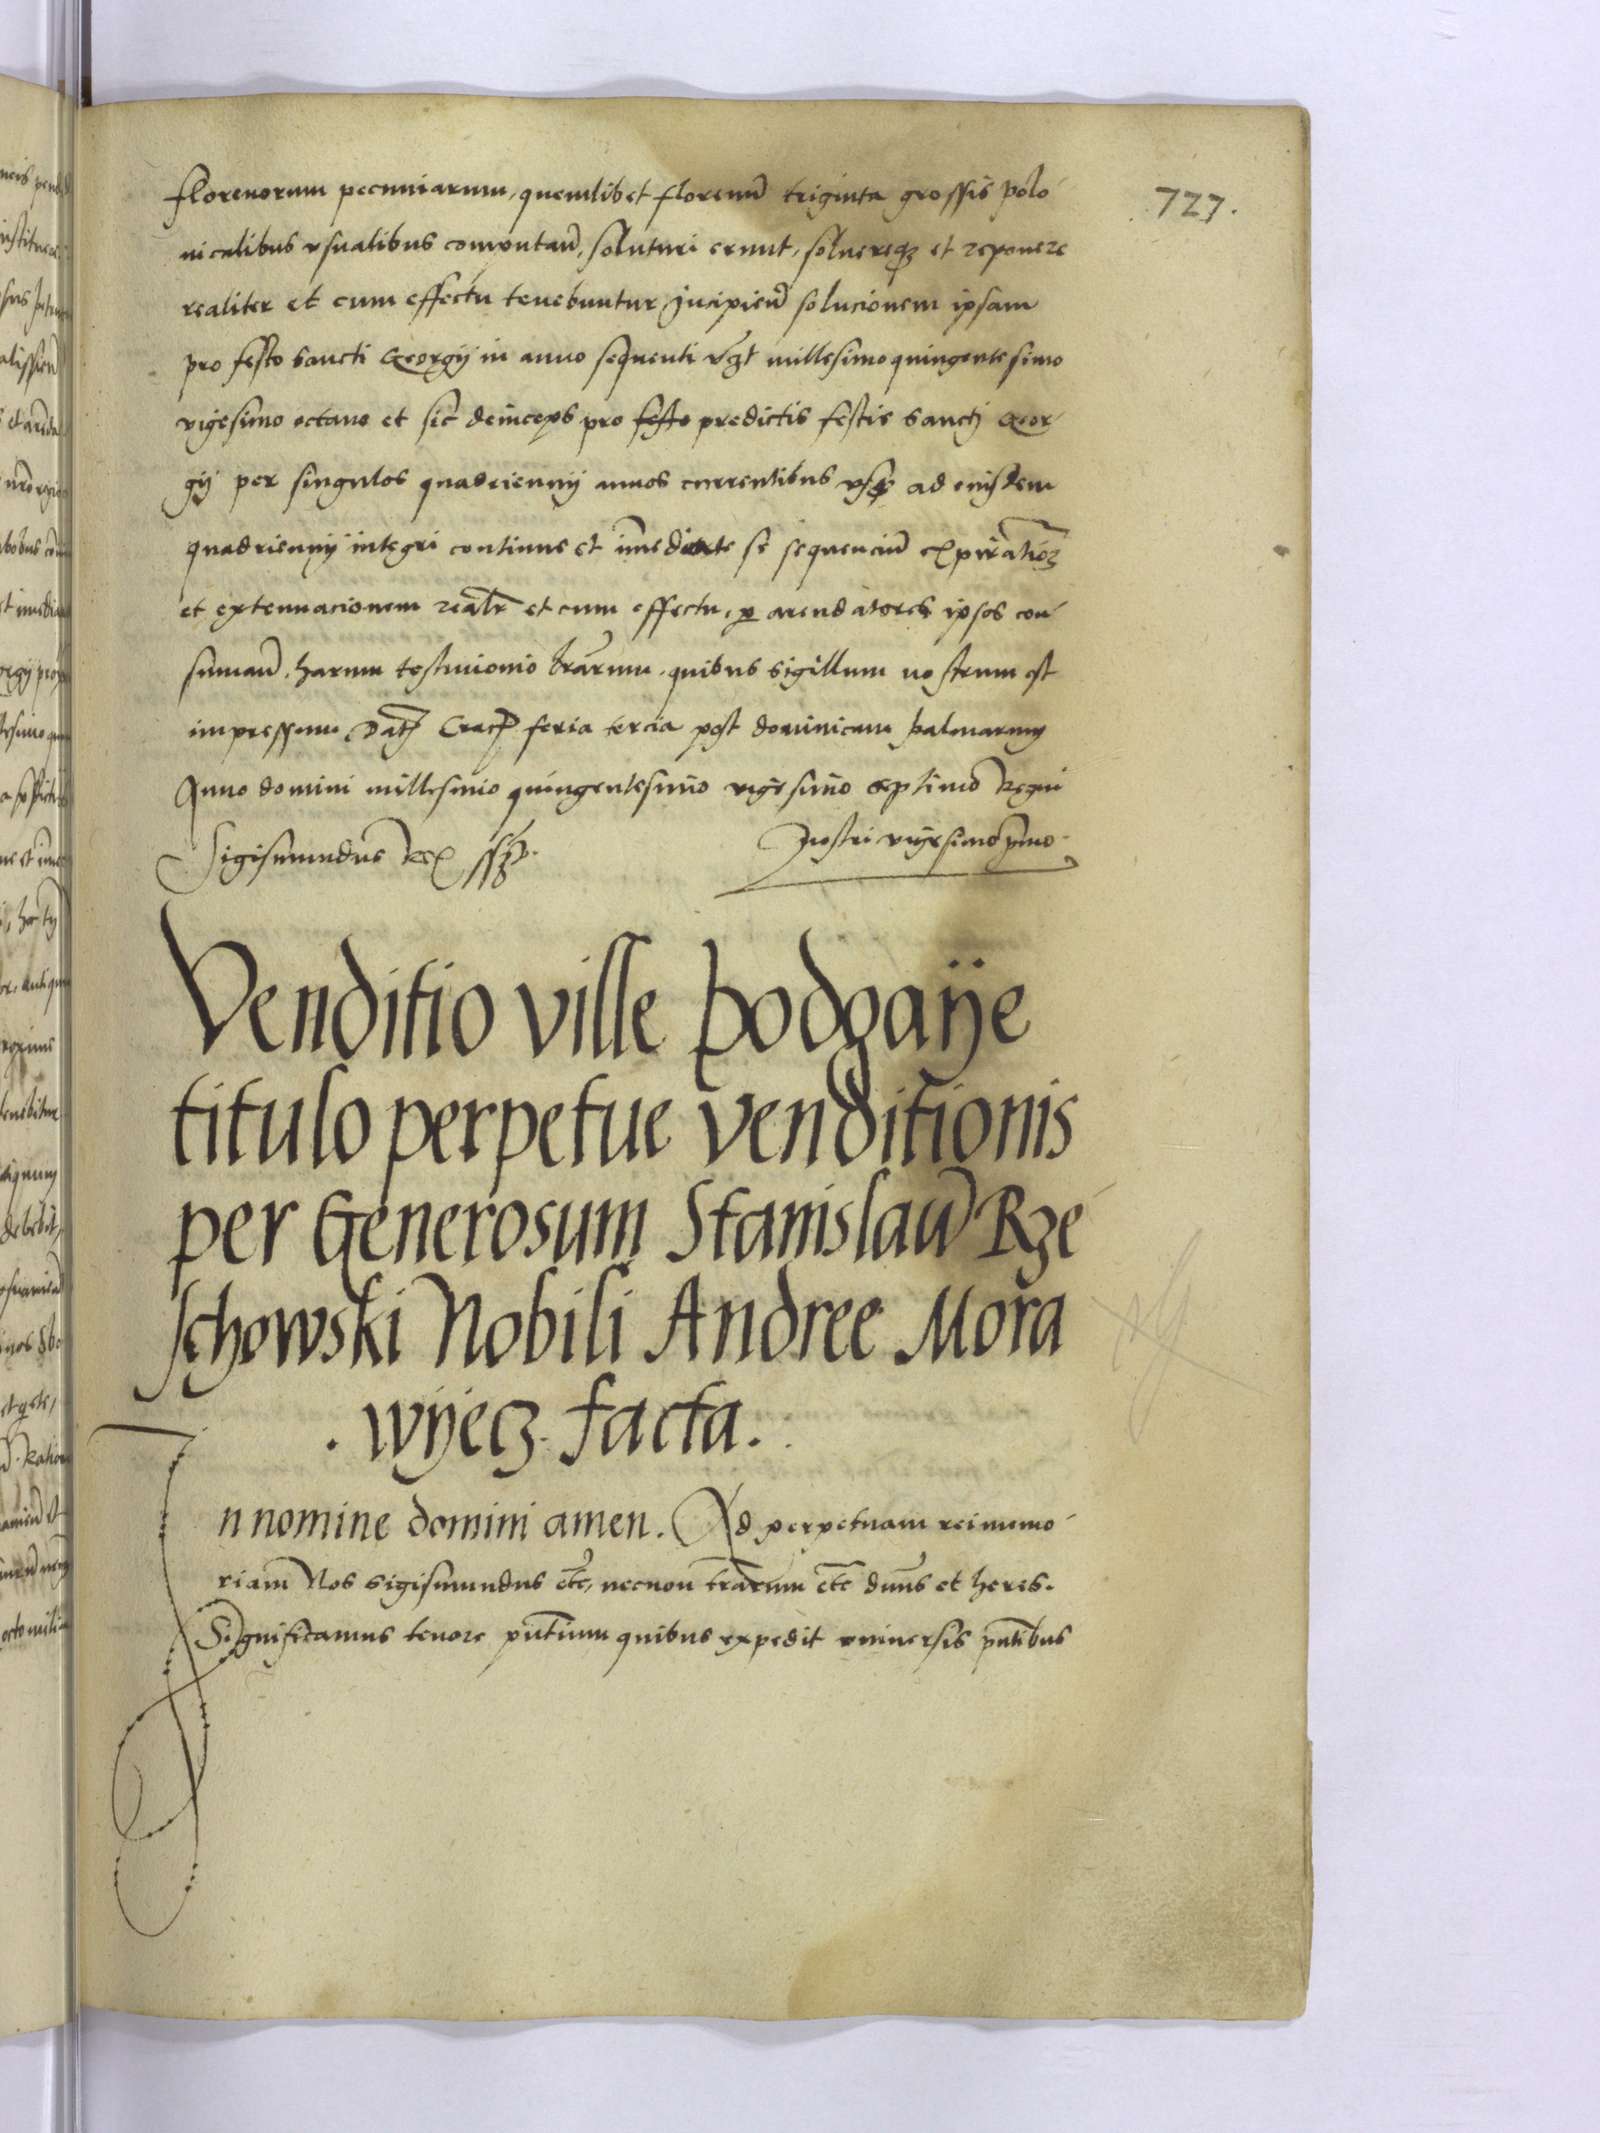 727.
florenorum pecuniarum, quemlibet florenu͂ triginta grossis polo
nicalibus vsualibus computan͂, soluturi erunt, soluereq3 et reponere
realiter et cum effectu tenebuntur Incipien͂ solucionem ipsam
pro festo sancti Georgij in anno sequenti vz͂t millesimo quingentesimo
vigesimo octauo et sic deinceps pro festo predictis festis sancti Geor
gij per singulos quadriennij annos currentibus vsq3 ad eiusdem
quadriennij integri continue et im͂ediate se sequenciu͂ expiratio͂3
et extenuacionem realr͂ et cum effectu, p arendatores ipsos con
suman͂. harum testimonio lr͂arum, quibus sigillum nostrum est
impressum, Dat͂ Crac͂ feria tercia post dominicam palmarum
Anno domini millesimo quingentesimo vigesimo septimo Regni
Sigismundus Rex sspt.
Nostri vigesimo p͂mo.
Venditio ville podgaÿe
titulo perpetue venditionis
per Generosum Stanislau͂ Rze
schowski Nobili Andree Mora
. wÿecz. facta.
In nomine domini amen. Ad perpetuam rei memo
riam Nos sigismundus et͂c, necnon tr͂arum et͂c dn͂s et heres.
Significamus tenore pn͂tium quibus expedit vniuersis pn͂tibus